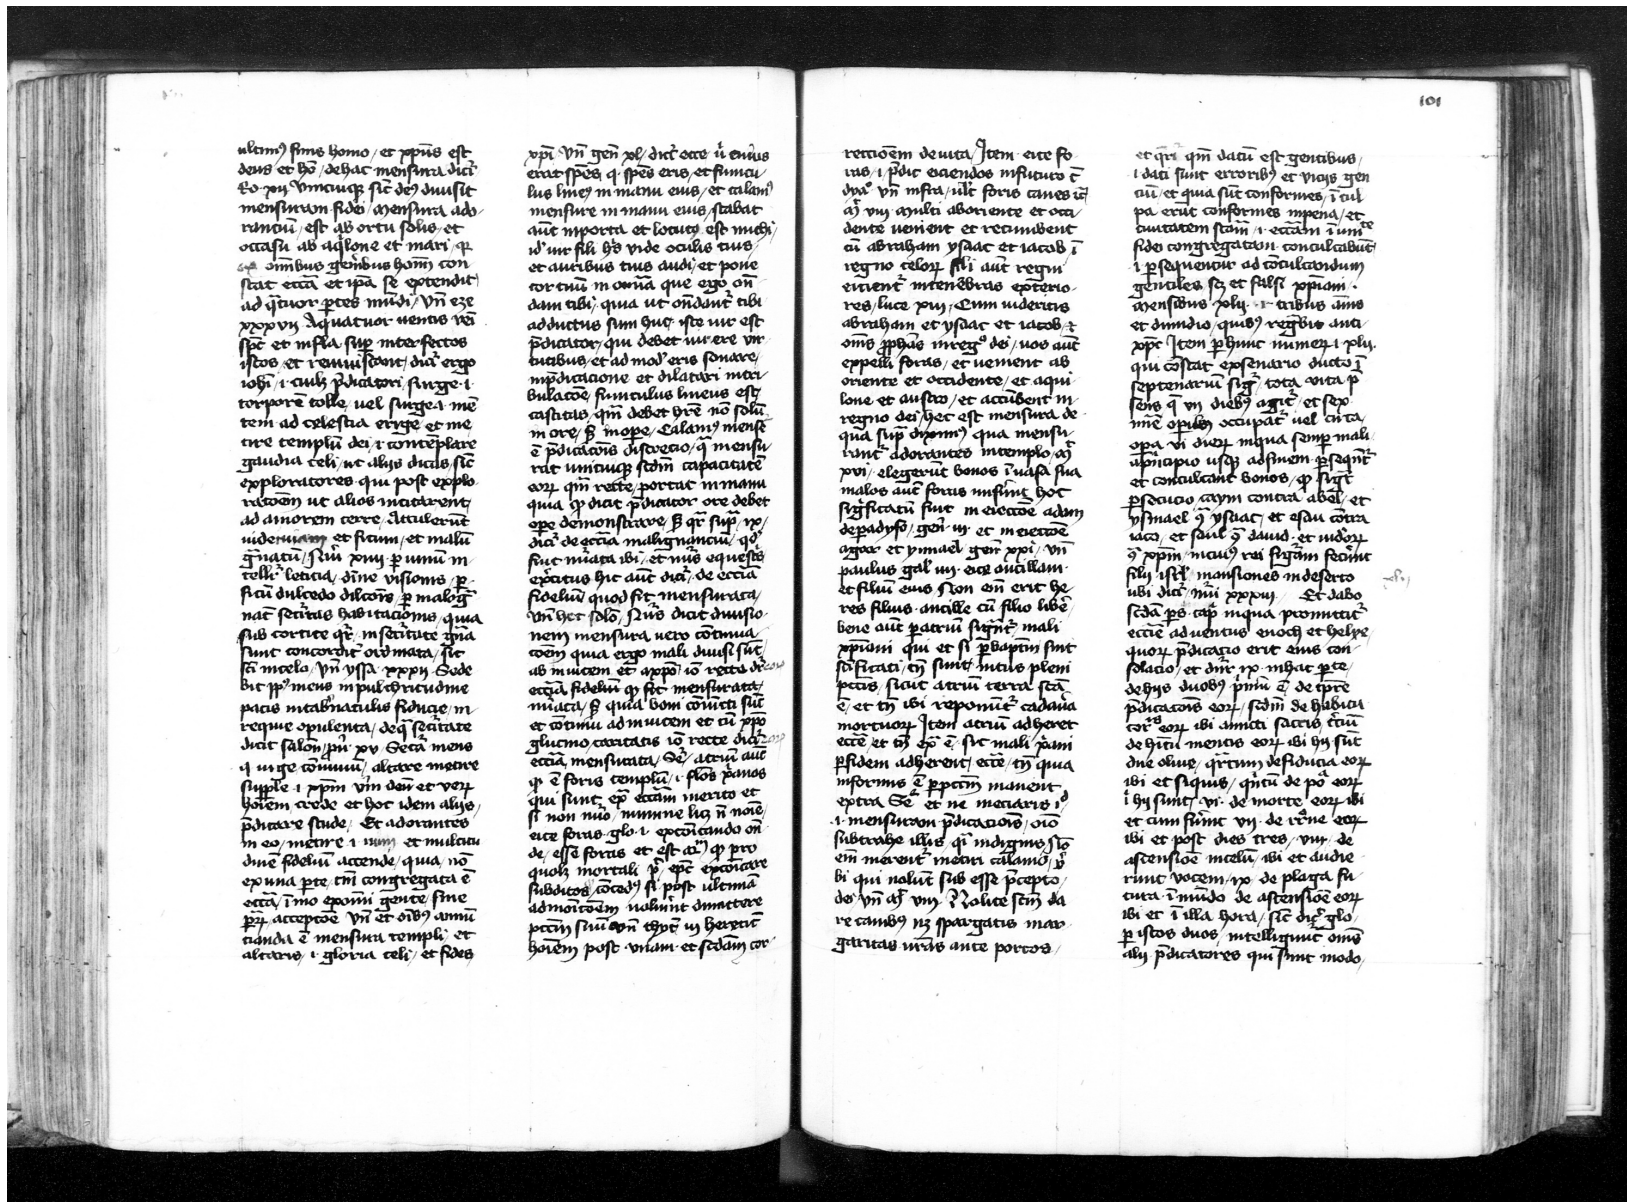 ultimus sinus homo / et xpūs est
deus et hō / de hac mensura dicit
Ro xij Vnicuiqz sic deus diuisit
mensuram fidei / mensura ado-
rancium / est ab ortu solis / et
occasu ab aqlone et mari / qr
omībus genībus hoīm con
stat eccā et ipā se extendit
ad qtuor ptes mūdi / vn̄ eze
xxxvij A quatuor uentis veī
spc et insfla sup interfectos
istos / et reuiuiscant / dicit ergo
iohī / i cuilz pdicatori / surge i
torporē tolle / uel surge i mē
tem ad celestia erige et me
tire templū dei i contēplare
gaudia celi / ut alijs dicas / sic
exploratores qui post explo
racōem ut alios incitarent /
ad amorem terre / attulerūt
et ficum / et malū
gnatū / Nūi xiij p uinum in
telligit leticia / diuīe visionis / p
ficū dulcedo dilcōis / p malogra
nat secītas habitacionis / quia
sub cortice qr in secitate gna
sunt concordit ordinata / sic
sci in celo / vn̄ ysa xxxij Sede
bit pplus meus in pulchritudine
pacis in tabnaculis fiducie / in
requie opulenta / de q secitate
dicit salon / pu xv Secā mens
q iuge cōuiuiū / altare metire
supple i xpm uīm deū et uerū
hoīem crede et hoc idem alijs /
pdicare stude / Et adorantes
in eo / metire i et multitu
dinē fidelium attende / quia nō
ex una pte / tm congregata ē
eccā / īmo ex omni gente / sine
psōr accepcōe vn̄ et oībus annū
cianda ē mensura templi / et
altaris / i gloria celi / et fides
xpi vn̄ gen xl / dicit ecce uir cuius
erat spēs q spēs eris / et funicu
lus lineus in manu eius / et calamus
mensure in manu eius / stabat
aut in porta et locutus est michi /
id uir fili hois vide oculis tuis /
et auribus tuis audi / et pone
cor tuū in omīa que ego on
dam tibi / quia ut ondant tibi
adductus sum huc / iste uir est
pdicator / qui debet uirere vir
tutibus / et ad mod eris sonare /
in pdicacione et dilatari in tri
bulacōe / funiculus lineus est
castitas / qm debet hre nō solū
in ore / s in ope / Calamus mense
ē pdicatoris discrecio / q mensu
rat unicuiqz scdm capacitatē
eorz qm recte portat in manu
quia qd dicit pdicator ore debet
ope demonstrare / s qr sup ix /
dicit de ecclia malignanciū / qd
fiut nuata ibi / et nus equestris
exercitus hic aut dicit / de ecclia
fideliū quod sit mensurata /
vn̄ hec solō / Nūs dicit diuisio
nem mensura uero cōtinua
cōem quia ergo mali diuisi sūt
ab inuicem et a xpo / iō recte dr
eccīa fidelium qd sit mensurata /
nuata / s quia boni cōiuncti sūt
et cōtinui ad inuicem et cū xpo
glutino / caritatis iō recte dicit
eccia mensurata / Se / atriū aut
qd ē foris templū / i flos pnos
qui sunt ex eccam merito et
si non nūo / numine licz n nōie /
eice foras / glo i excōicando on
de / esse foris et est qd pro
quolz mortali pr / epc excōicare
subditos cōcedus si post ultimā
admonicōem noluint dimittere
pctm suū vn̄ thyt iij hereticū
hoīem post vnam et scdam cor
reccioēm deuita / Item eice fo
ras / i pdic eiciendos in futuro t
dya vn̄ infra / ult foris canes ic
M viij multi ab oriente et occi
dente uenient et recumbent
cū abraham ysaac et iacob ī
regno celorz fili aut regni
eicient in tenebras exterio
res / luce xiij / Cum uideritis
abraham et ysaac et iacob / et
oms pphās in regno dei / vos aut
expelli foras / et uenient ab
oriente et occidente / et aqui
lone et austro / et accūbent in
regno dei / hec est mensura de
qua sup diximus qua mensu
rant adorantes in templo / M
xvi / elegerūt bonos ī uasa sua
malos aut foras misīnt hoc
significatū fuit in eieccōe adam
de padyso / gen iij et in eieccōe
agar et ysmael gen xxi / vn̄
paulus gal iiij eice ancillam
et filium eius Non em erit he
res filius ancille cū filio libere
bene aut p atrium signt mali
xpiani qui et si p baptm sint
scificati / tn sunt intus pleni
pctis / sicut atriū terra scā
ē / et tn ibi reponut cadaua
mortuorz Item atriū adheret
eccē / et tn ex ē / sic mali pani
p fidem adherent / eccē / tn quia
informis ē p pctm manent
extra Se et ne meciaris id
i mensuram pdicacois / oīo
subtrahe illis / qi indignis sio
em merent metiri calamo / v
bi qui nolūt sub esse pcepto /
dei / vn̄ M viij Nolite scm da
re canibus nz spargatis mar
garitas uras ante porcos /
et qri qm datū est gentibus /
i dati sunt erroribus et vicijs gen
ciū / et quia sūt conformes / ī cul
pa erūt conformes in pena / et
ciuitatem scām / i eccam ī unite
fidei congregatam conculcabūt
i psequentur ad cōculcandum
gentiles sz et falsi xpiani
mensibus xlij i tribus annis
et dimidio / quibus regbit anti
xpc Item p hunc numerz i xlij
qui cōstat ex senario ducto ī
septenariū sigr tota vita p
sens q vij diebus agit / et sex
in opibus occupat uel circa
opa vi dierz in qua semp mali
a pncipio usqz ad finem psequt
et conculcant bonos / qd sigt
psecucio caym contra abel / et
ysmael q ysaac / et esau cōtra
iaco / et saul q dauid et iudorz
q xpm / in cuius rei figram fecint
filij isrl mansiones in deserto
ubi dicit nūi xxxiij Et dabo
scda ps cap in qua promittit
eccie aduentus enoch et helye
quorz pdicacio erit eius con
solacio / et dnr ix in hac pte /
de hijs duobus pmū ē de tpre
pdicatois eorz / scdm de habitu
eorz ibi amicti saccis tciū
de hītu mentis eorz ibi hij sūt
due oliue / qrtum de fiducia eorz
ibi et siquis / qntū de pō eorz
ī hij sunt / vi de morte eorz ibi
et cum fuint vij de rrcne eorz
ibi et post dies tres / viij de
ascensiōe in celū / ibi et audie
runt vocem / ix de plaga fu
tura ī mūdo de ascensiōe eorz
ibi et ī illa hora / sic dic glo /
p istos duos / intelligunt oms
alij pdicatores qui sunt modo /
101